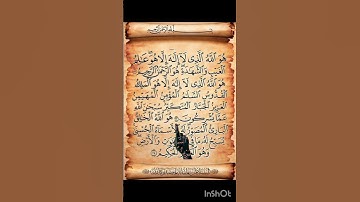 هُوَ اللَّهُ الَّذِي لَا إِلَٰهَ إِلَّا هُوَ عَٰلِمُ
الْغَيْبِ وَالشَّهَٰدَةِ هُوَ الرَّحْمَٰنُ الرَّحِيمُ
هُوَ اللَّهُ الَّذِي لَا إِلَٰهَ إِلَّا هُوَ الْمَلِكُ
الْقُدُّوسُ السَّلَٰمُ الْمُؤْمِنُ الْمُهَيْمِنُ
الْعَزِيزُ الْجَبَّارُ الْمُتَكَبِّرُ سُبْحَٰنَ اللَّهِ
عَمَّا يُشْرِكُونَ هُوَ اللَّهُ الْخَٰلِقُ
الْبَارِئُ الْمُصَوِّرُ لَهُ الْأَسْمَاءُ الْحُسْنَىٰ
يُسَبِّحُ لَهُ مَا وَالْأَرْضِ
وَهُوَ الْحَكِيمُ
InShOt